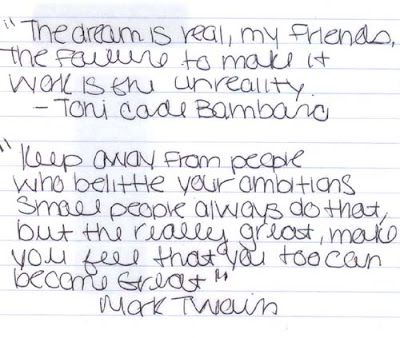 "The dream is real, my friends.
The failure to make it
work is the unreality.
- Toni cade Bambara
"Keep away from people
who belittle your ambitions
Small people always do that,
but the really great, make
you feel that you too can
become Great"
Mark Twain